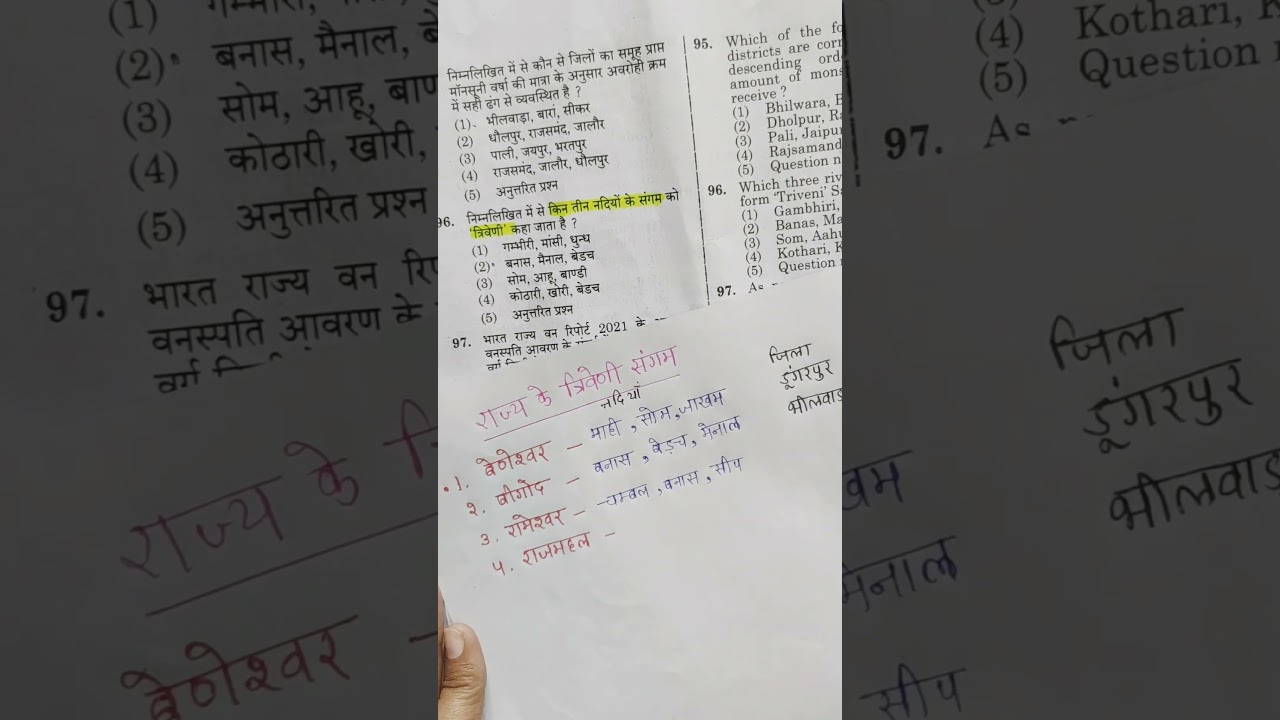 निम्नलिखित में से कौन से जिलों का समूह प्राप्त
मॉनसूनी वर्षा की मात्रा के अनुसार अवरोही क्रम
में सही ढंग से व्यवस्थित है ?
(1) भीलवाड़ा, बारां, सीकर
(2) धौलपुर, राजसमंद, जालौर
(3) पाली, जयपुर, भरतपुर
(4) राजसमंद, जालौर, धौलपुर
(5) अनुत्तरित प्रश्न
96. निम्नलिखित में से किन तीन नदियों के संगम को
'त्रिवेणी' कहा जाता है ?
(1) गम्भीरी, मांसी, धुन्ध
(2) बनास, मैनाल, बेडच
(3) सोम, आहू, बाण्डी
(4) कोठारी, खोरी, बेडच
(5) अनुत्तरित प्रश्न
97. भारत राज्य वन रिपोर्ट 2021 के
वनस्पति आवरण के
वर्ग
95. Which of the fo
districts are corr
descending ord
amount of mons
receive ?
(1) Bhilwara, B
(2) Dholpur, Ra
(3) Pali, Jaipu
(4) Rajsamand
(5) Question n
96. Which three riv
form 'Triveni' S
(1) Gambhiri,
(2) Banas, Ma
(3) Som, Aahu
(4) Kothari, K
(5) Question
97. As
राज्य के त्रिवेणी संगम
नदियाँ
जिला
1. बेणेश्वर – माही, सोम, जाखम
डूंगरपुर
2. बीगोद – बनास, बेड़च, मेनाल
भीलवाड
3. रामेश्वर – चम्बल, बनास, सीप
4. राजमहल –